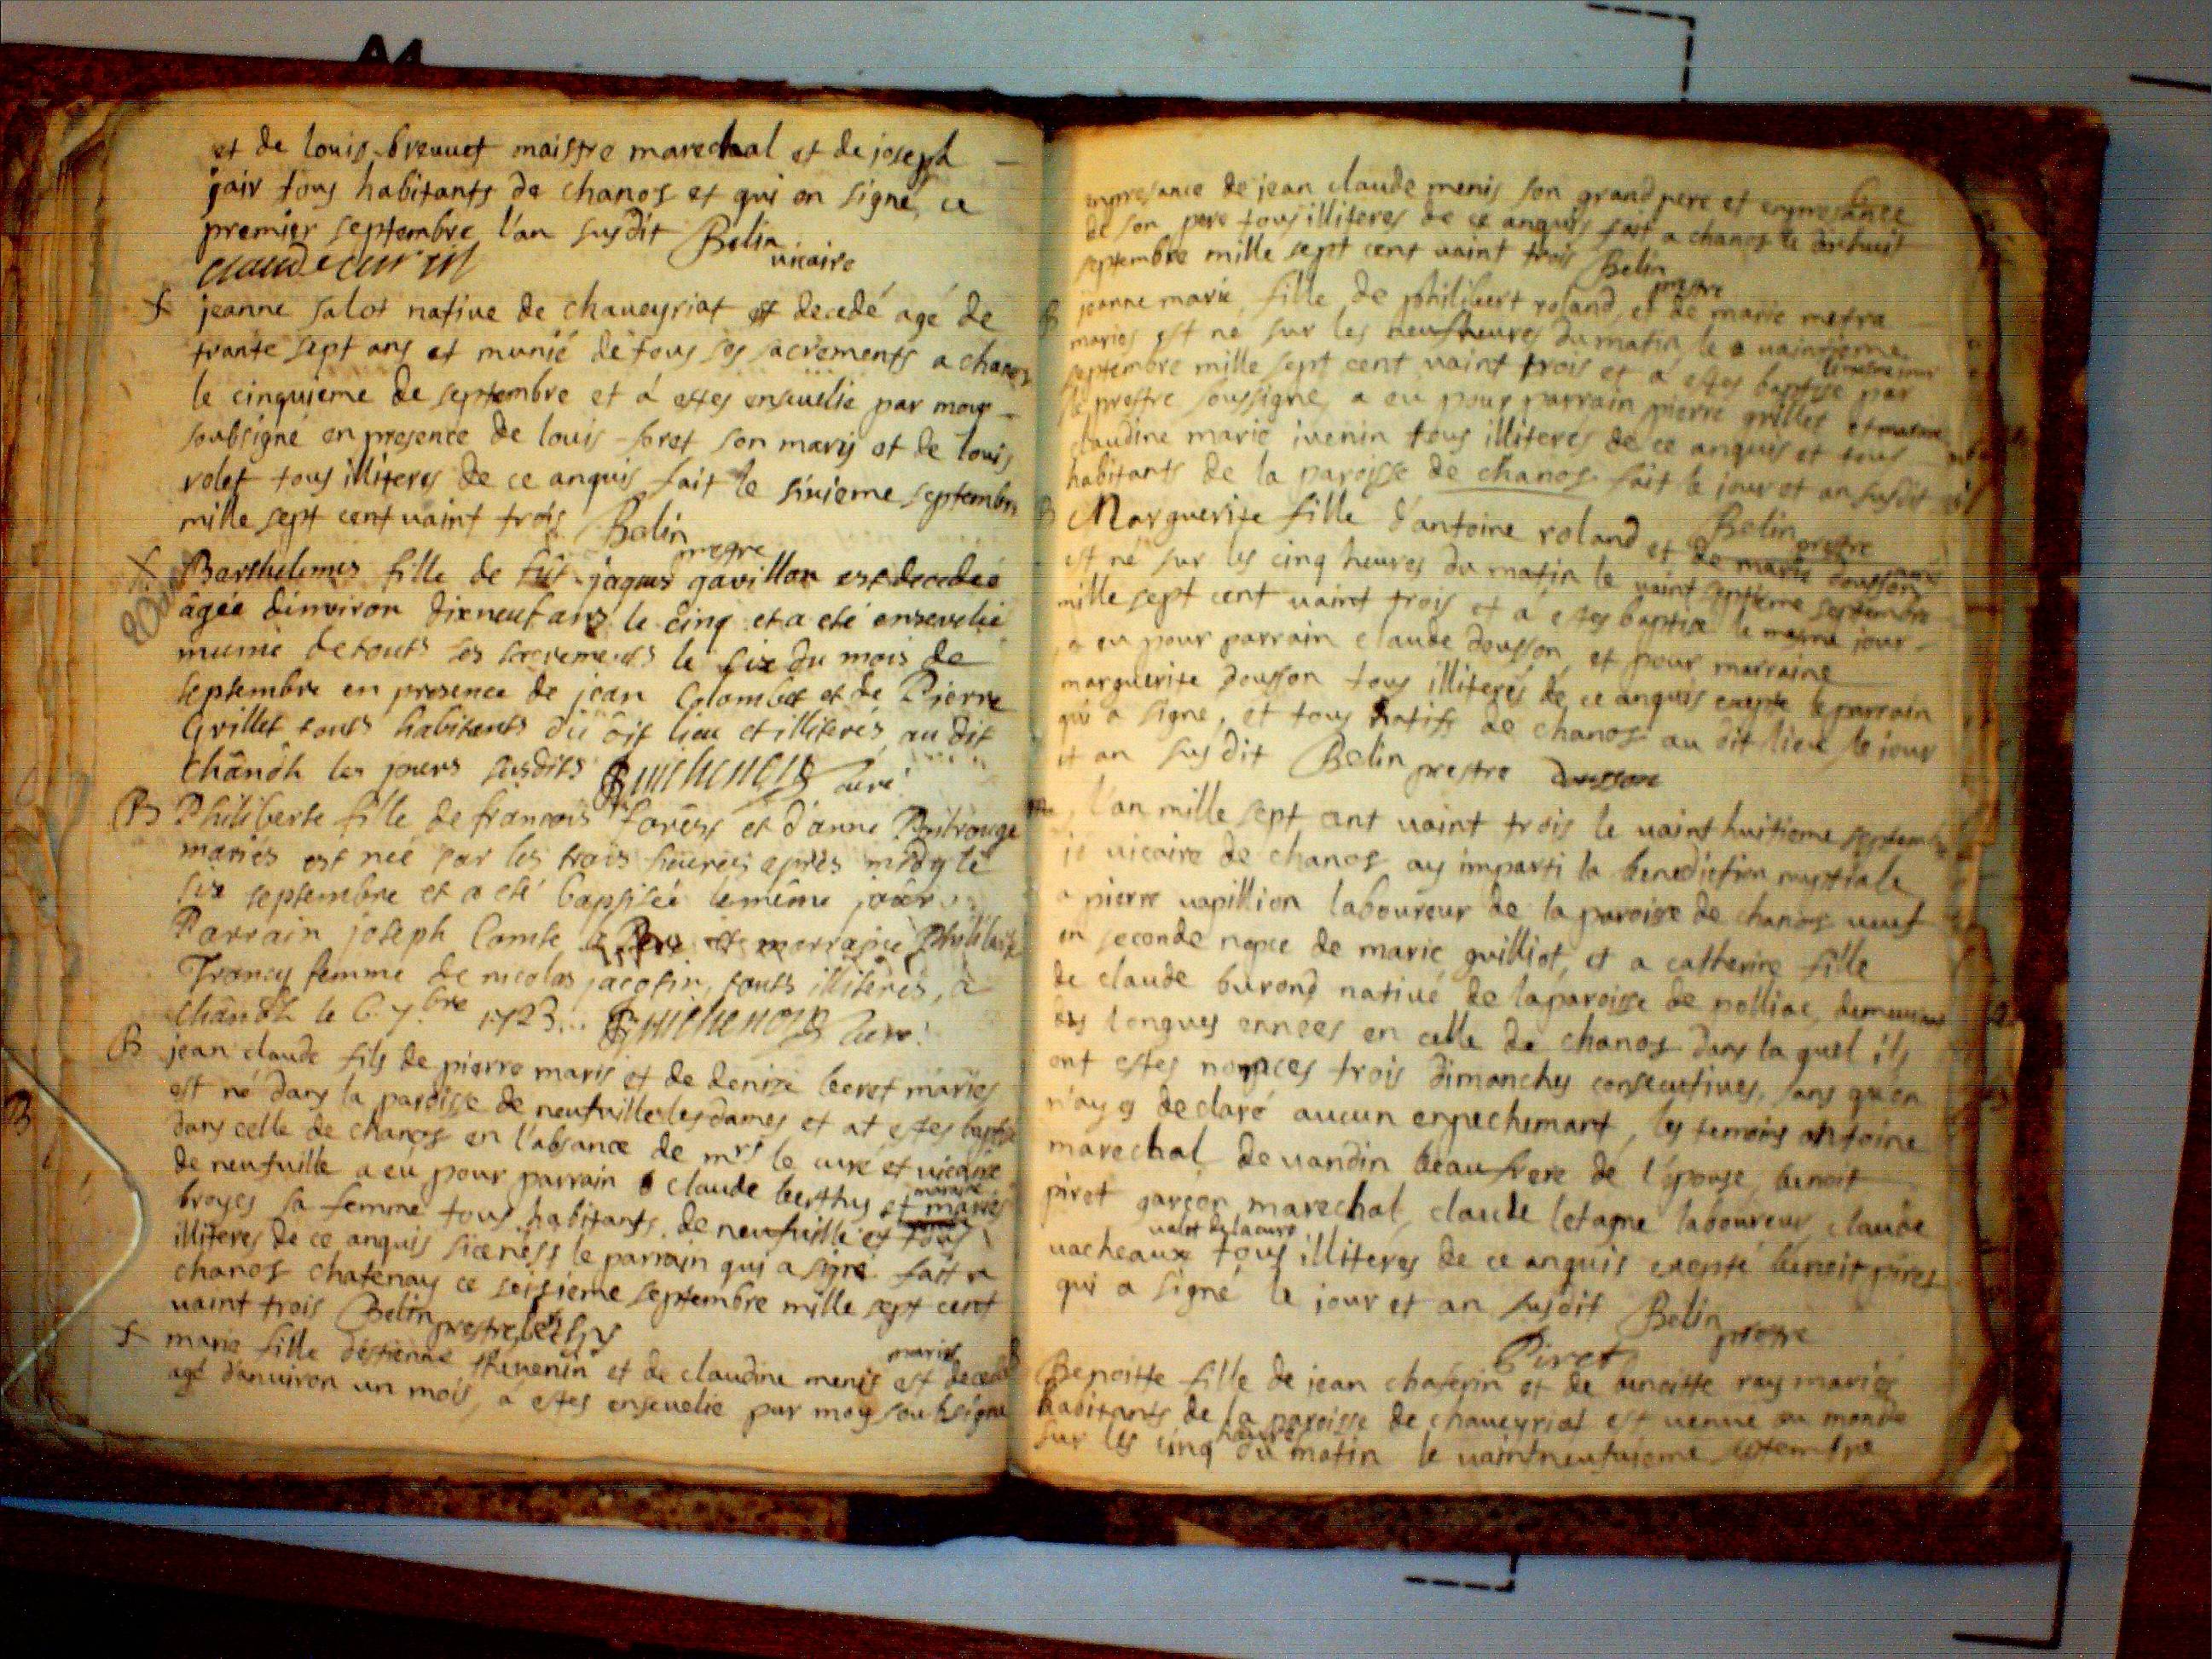 A4
et de louis breuuet maistre marechal et de joseph
jair tous habitants de chanos et qui on signé, ce
premier septembre l'an susdit Belin
vicaire
jeanne salot natiue de chaueyriat est decedé agé de
trante sept ans et munié de tous ses sacrements a chanos
le cinquieme de septembre et á estes enseuelie par moy
soubsigné en presence de louis foret son marys et de louis
rolet tous illiteres de ce anquis fait le sixieme septembre
mille sept cent uaint trois Belin
prestre
Barthelemis fille de jaques gavillon est decedeé
âgée dénviron dixneuf ans le cinq et a eté ensevelie
munie de touts ses sacrements le six du mois de
septembre en presence de jean Colombet et de Pierre
Grillet touts habitants du dit lieu et illiterés au dit
chânôz les jours susdits curé
B Philiberte fille de francois forêst et d'anne
mariés est neé sur les trois heures aprés midy le
six septembre et a eté baptisée le même jour
Parrain joseph Comte et marraine
Francy femme de nicolas jacotin, touts illiterés, á
chânôz le 6 7.bre 1723 curé
B jean claude fils de pierre maris et de denize beret mariés
est né dans la paroisse de neufuilleslesdames et at estes
dans celle de chanos en l'absance de mrs le curé et vicaire
de neufuille a eú pour parrain claude berthy et
marraine
broyes sa femme tous habitants de neufuille et tous
illiteres de ce anquis le parrain qui a signé fait a
chanos chatenay ce seisieme septembre mille sept cent
uaint trois Belin prestre berthy
maries
marie fille d'estienne theuenin et de claudine menis est decedé
agé d'anuiron un mois, á estes enseuelie par moy soubsigné
B
enpresance de jean claude menis son grand pere et enpresance
de son pere tous illiteres de ce anquis fait a chanos le dixhuit
septembre mille sept cent vaint trois Belin
prestre
B jeanne marie fille de philibert roland, et de marie metra
maries est né sur les neufheures du matin le uaintieme
septembre mille sept cent vaint trois et á estes baptise par
le prestre soussigné, a eú pour parrain pierre grilles
claudine marie iuenin tous illiteres de ce anquis et tous
habitants de la paroisse de chanos fait le jour et an susdit
Belin prestre
B Marguerite fille d'antoine roland et de marie dousson
est né sur les cinq heures du matin le uaint septieme septembre
mille sept cent uaint trois et á estes baptise le mesme jour
a eu pour parrain claude dousson, et pour marraine
marguerite dousson tous illiterés de ce anquis excepte le parrain
qui a signé, et tous natifs de chanos au dit lieu le jour
et an susdit Belin prestre dousson
l'an mille sept cent uaint trois le uaint huitieme septembre
je uicaire de chanos ay imparti la benediction nuptiale
a pierre uapillion laboureur de la paroisse de chanos ueuf
en seconde nopce de marie guilliot, et a catherine fille
de claude burond natiué de la paroisse de polliac,
des longues ennees en celle de chanos dans la quel ils
ont estes nonces trois dimanches consecutiues, sans qu'on
n'ay declaré aucun enpechemant, les temoins antoine
marechal de uandin beaufrere de l'épouse, benoit
piret garçon marechal, claude letagne laboureur, claude
ualet de la cure
uacheaux tous illiteres de ce anquis exepté benoit piret
qui a signé le jour et an susdit Belin
prestre
Piret
Benoitte fille de jean chaserin et de benoitte ray mariés
habitants de la paroisse de chaueyriat est uenue au monde
heures
sur les cinq du matin le uaintneufuieme septembre